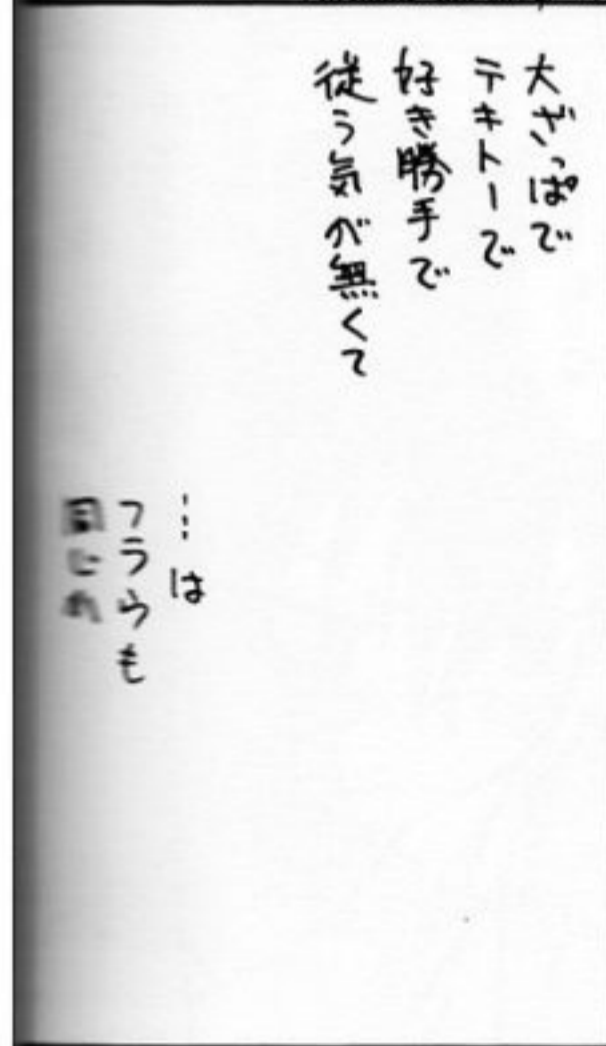 大ざっぱで
テキトーで
好き勝手で
従う気が無くて
…は
フラウも
同じね